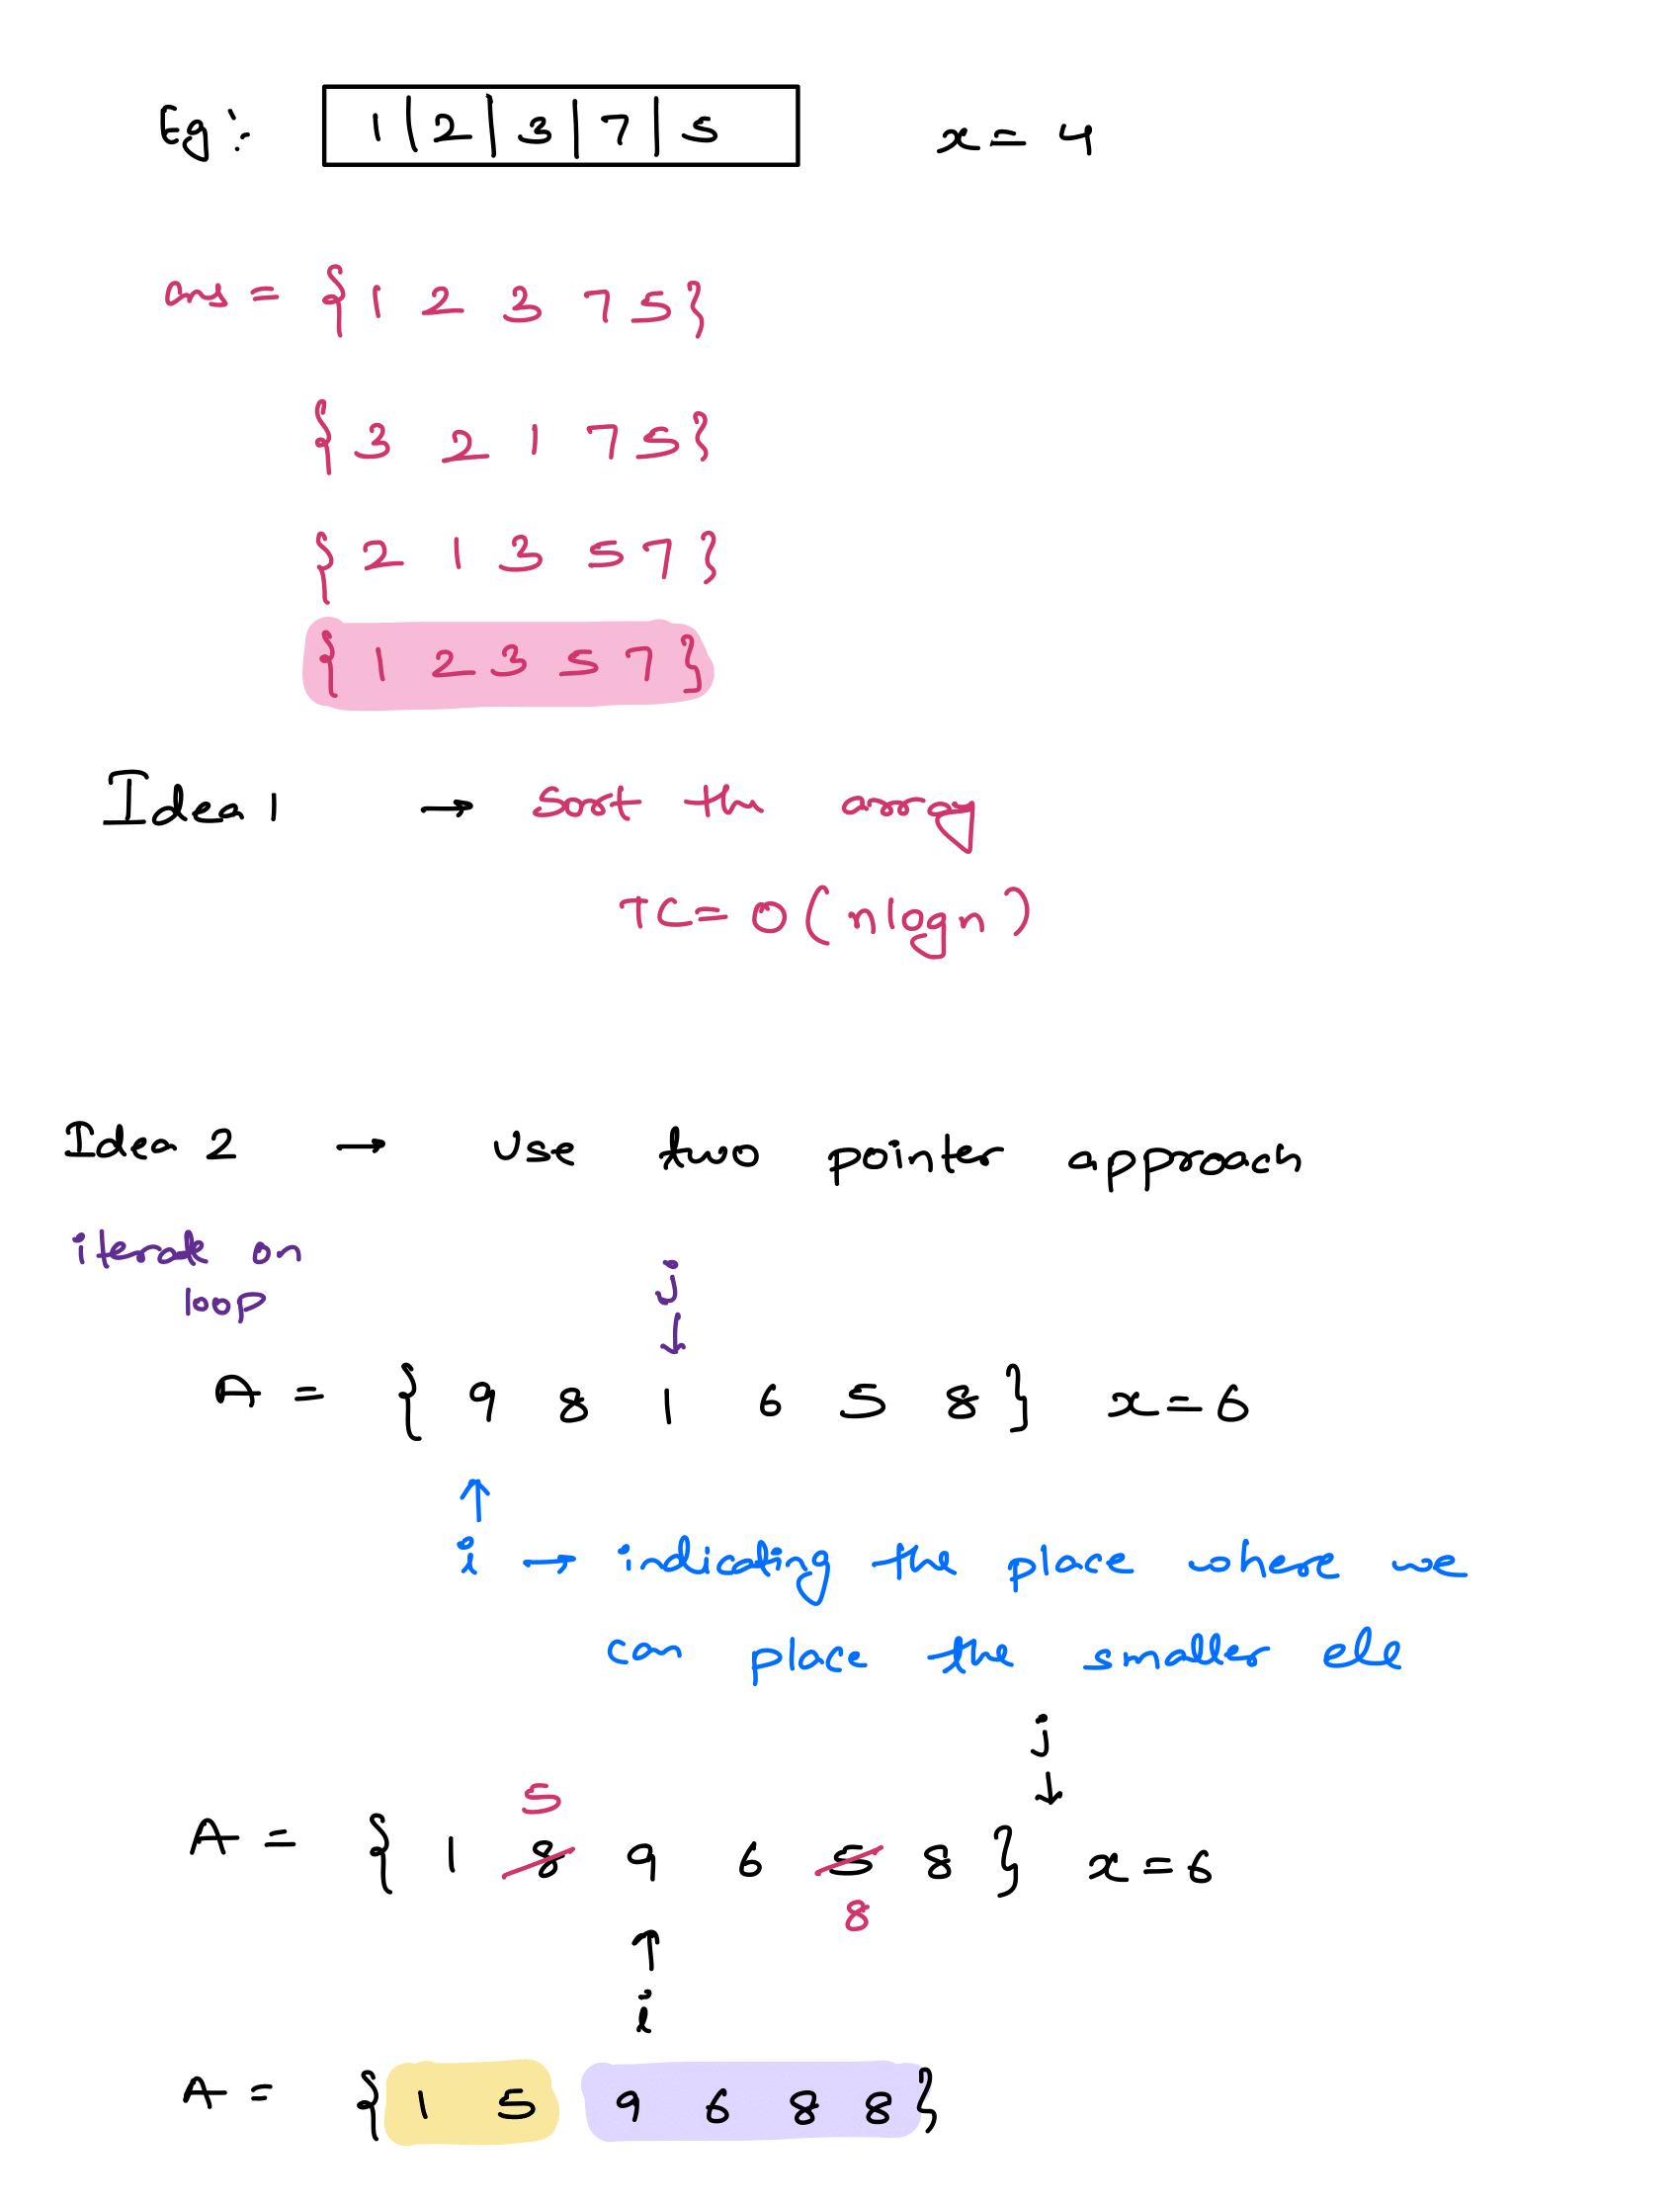 Eg: 1 | 2 | 3 | 7 | 5 x = 4
ans = { 1 2 3 7 5 }
{ 3 2 1 7 5 }
{ 2 1 3 5 7 }
{ 1 2 3 5 7 }
Idea 1 → Sort the array
TC = O ( nlogn )
Idea 2 → Use two pointer approach
iterate on
loop
j
↓
A = { 9 8 1 6 5 8 } x = 6
↑
i → indicating the place where we
can place the smaller ele
j
↓
5
A = { 1 8 9 6 5 8 } x = 6
8
↑
i
A = { 1 5 9 6 8 8 }